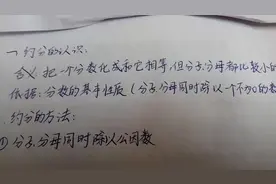 一约分的认识:
含义:把一个分数化成和它相等,但分子、分母都比较小的
依据:分数的基本性质(分子、分母同时除以一个不为0的数
约分的方法:
① 分子、分母同时除以公因数